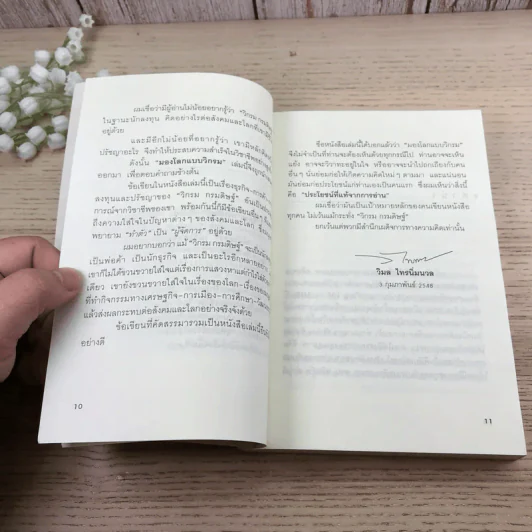 ผมเชื่อว่ามีผู้อ่านไม่น้อยอยากรู้ว่า "วิกรม กรมดิษฐ์"
ในฐานะนักลงทุน คิดอย่างไรต่อสังคมและโลกที่เขามีชีวิต
อยู่ด้วย
และมีอีกไม่น้อยที่อยากรู้ว่า เขามีหลักคิด
ปรัชญาอะไร จึงทำให้ประสบความสำเร็จในวิชาชีพอย่างสูง
ดังนั้น "มองโลกแบบวิกรม" เล่มนี้จึงถูก
ออกมา เพื่อตอบคำถามข้างต้น
ข้อเขียนในหนังสือเล่มนี้เป็นเรื่องธุรกิจ-การ
ลงทุนและปรัชญาของ "วิกรม กรมดิษฐ์" อันเป็น
การณ์จากวิชาชีพของเขา พร้อมกันนี้ก็มีข้อเขียนอื่นๆ
ถึงความใส่ใจในปัญหาต่างๆ ของสังคมและโลก ซึ่ง
พยายาม "ทำตัว" เป็น "ผู้จัดการ" อยู่ด้วย
ผมอยากบอกว่า แม้ "วิกรม กรมดิษฐ์" จะเป็นนัก
เป็นพ่อค้า เป็นนักธุรกิจ และเป็นอะไรอีกหลายอย่าง
เขาก็ไม่ได้ขวนขวายใส่ใจแต่เรื่องการแสวงหาแต่กำไร
เดียว เขายังขวนขวายใส่ใจในเรื่องของโลก-เรื่องของ
ที่ทำกิจกรรมทางเศรษฐกิจ-การเมือง-การศึกษา-
แล้วส่งผลกระทบต่อสังคมและโลกอย่างจริงจังด้วย
ข้อเขียนที่คัดสรรมารวมเป็นหนังสือเล่มนี้
อย่างดี
10
ซึ่งหนังสือเล่มนี้ได้บอกแล้วว่า "มองโลกแบบวิกรม"
จึงไม่จำเป็นที่ท่านจะต้องเห็นด้วยทุกกรณีไป ท่านอาจจะเห็น
แย้ง อาจจะวิวาทะอยู่ในใจ หรืออาจจะนำไปถกเถียงกับคน
อื่นๆ นั่นย่อมก่อให้เกิดความคิดใหม่ๆ ตามมา และแน่นอน
มันย่อมก่อประโยชน์แก่ท่านเองเป็นคนแรก ซึ่งผมเห็นว่าสิ่งนี้
คือ "ประโยชน์ที่แท้จากการอ่าน"
ผมเชื่อว่ามันเป็นเป้าหมายหลักของคนเขียนหนังสือ
ทุกคน ไม่เว้นแม้กระทั่ง "วิกรม กรมดิษฐ์"
ยกเว้นแต่พวกมีสำนึกเผด็จการทางความคิดเท่านั้น
วิมล ไทรนิ่มนวล
๖ กุมภาพันธ์ 2548
11